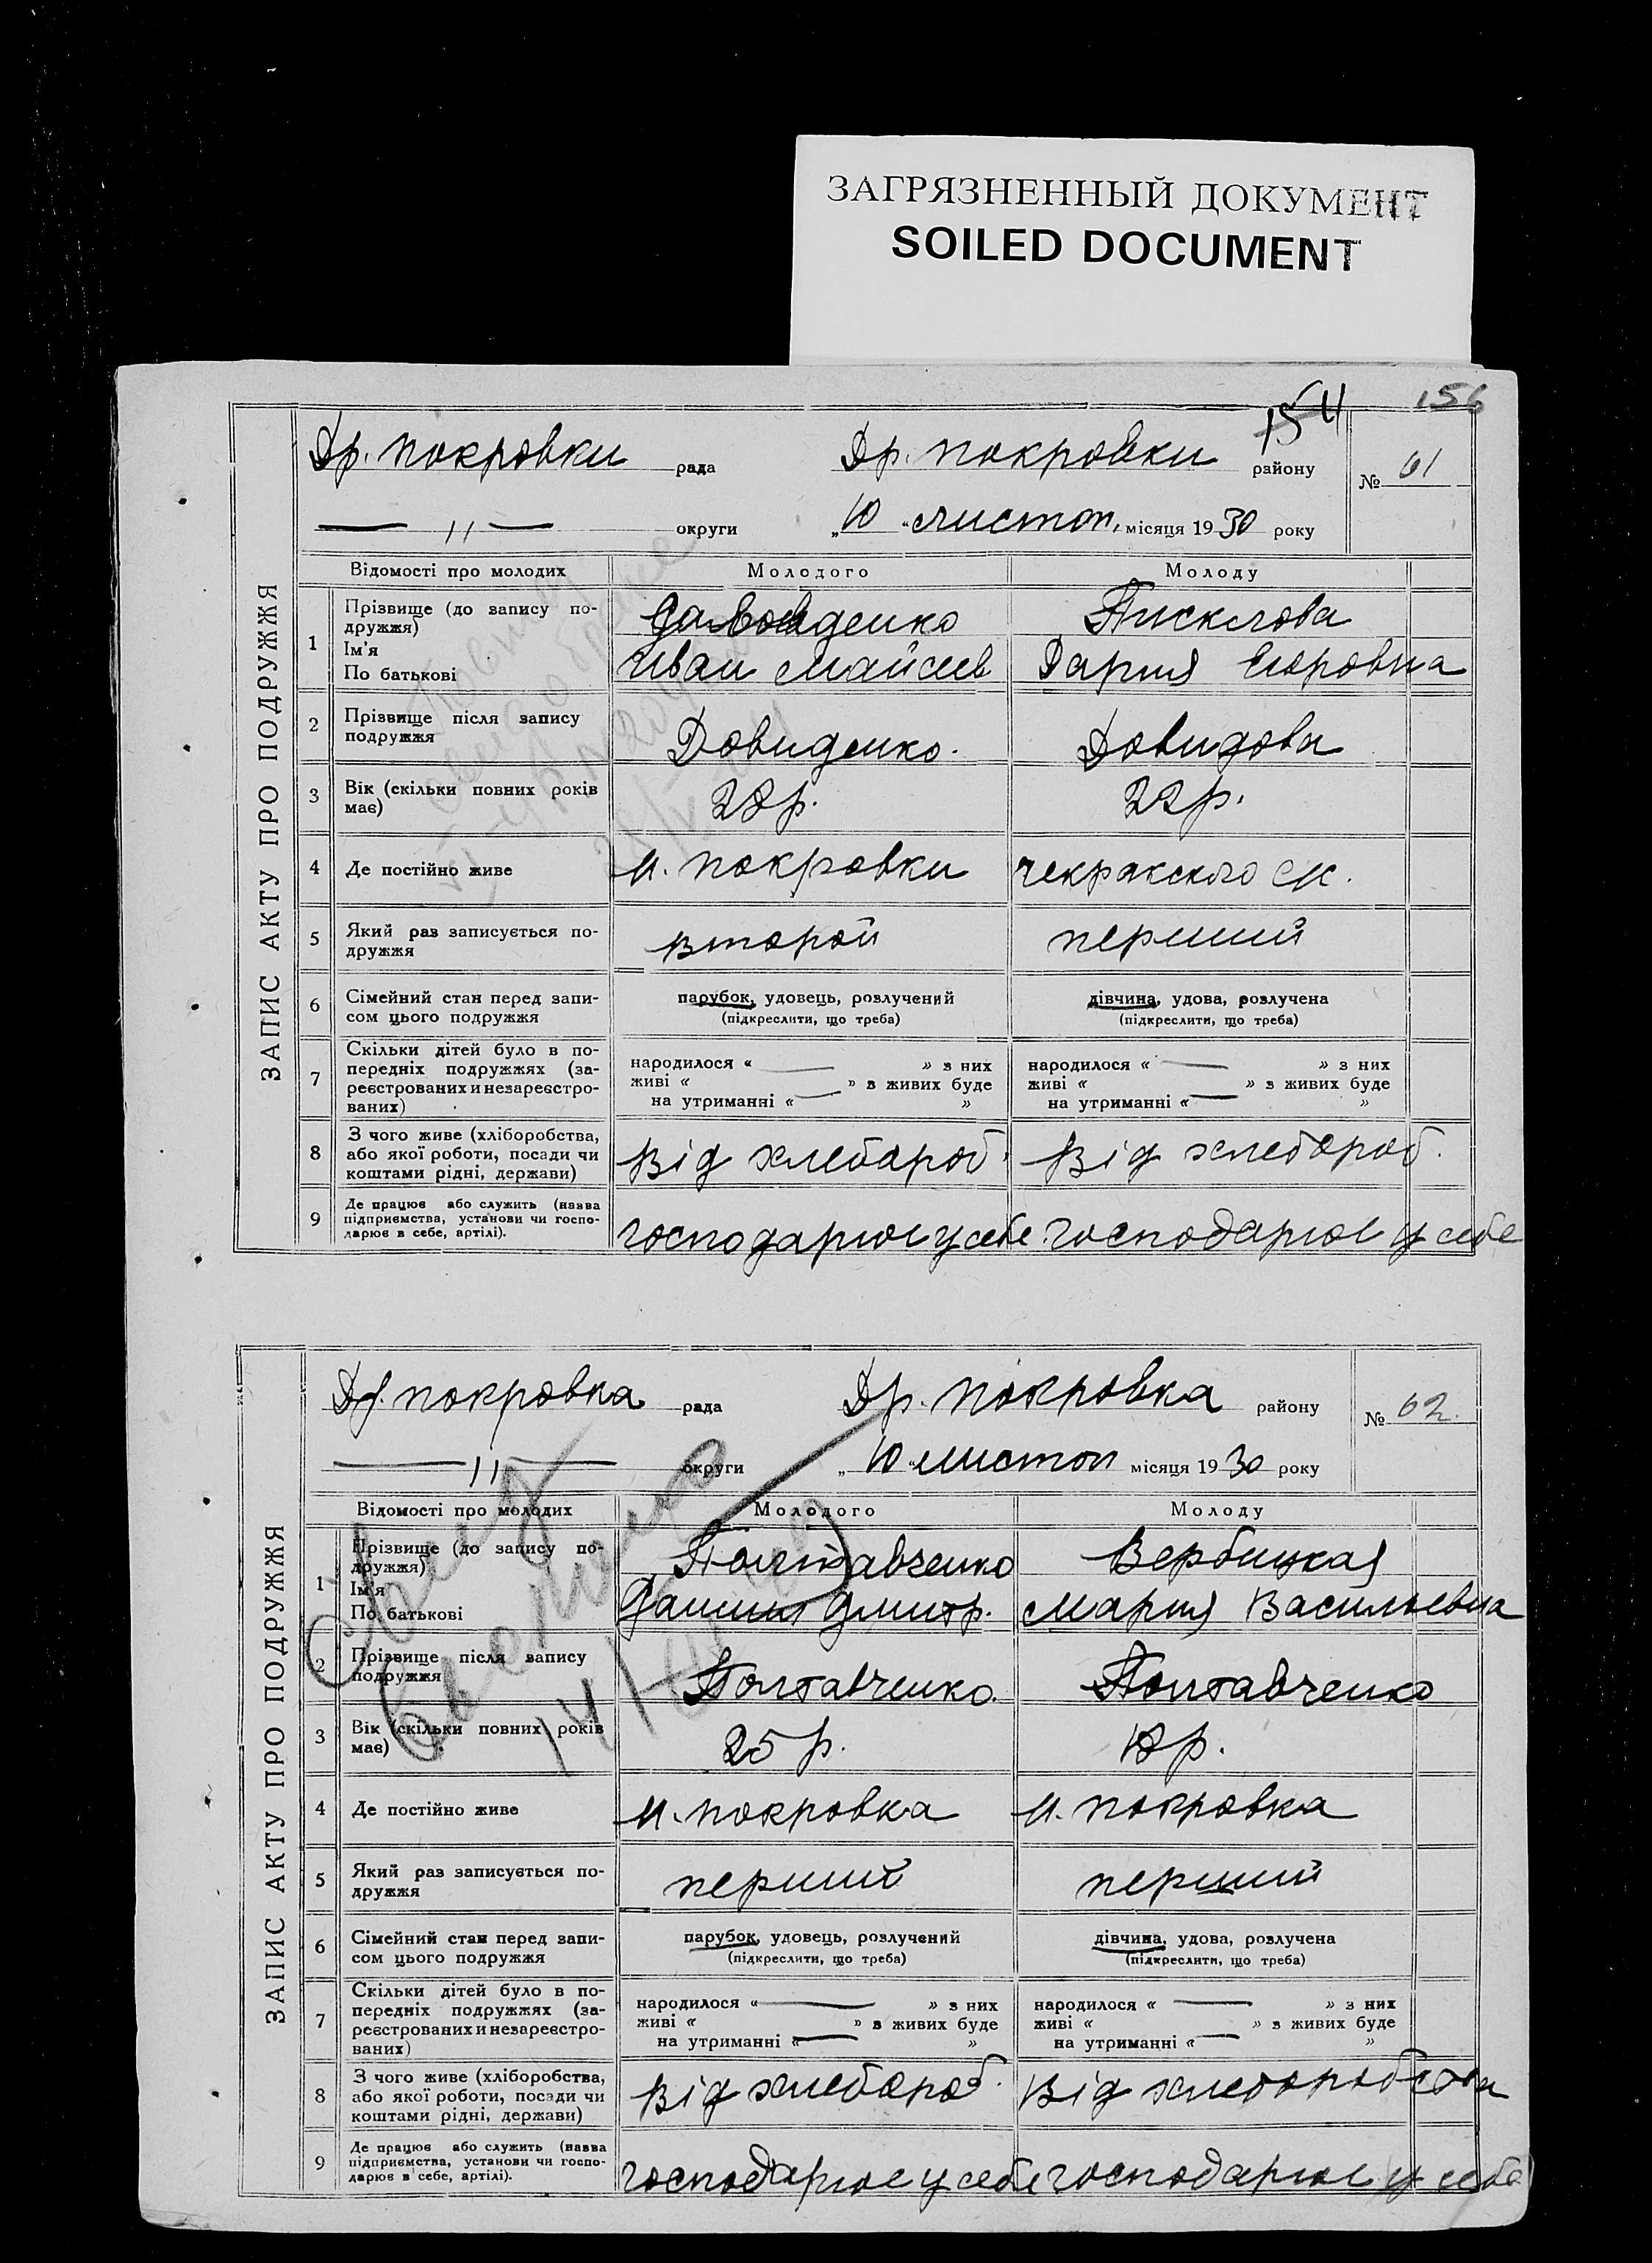 ЗАГРЯЗНЕННЫЙ ДОКУМЕНТ
SOILED DOCUMENT
156
154
ЗАПИС АКТУ ПРО ПОДРУЖЖЯ
Др. покровки рада Др. покровки району № 61
— 11 — округи „10“ листоп, місяця 1930 року
Відомості про молодих Молодого Молоду
1 Прізвище (до запису по-
дружжя)
Ім'я
По батькові
Писклова
Иван Майсеев Дария Егоровна
2 Прізвище після запису
подружжя
Довиденко. Довидова
3 Вік (скільки повних років
має)
28р. 22р.
4 Де постійно живе м. покровки чекракского
5 Який раз записується по-
дружжя
второй перший
6 Сімейний стан перед запи-
сом цього подружжя
парубок, удовець, розлучений дівчина, удова, розлучена
(підкреслити, що треба) (підкреслити, що треба)
7 Скільки дітей було в по-
передніх подружжях (за-
реєстрованих и незареєстро-
ваних)
народилося « — » з них народилося « — » з них
живі « » з живих буде живі « » з живих буде
на утриманні « — » на утриманні « — »
8 З чого живе (хліборобства,
або якої роботи, посади чи
коштами рідні, держави)
від хлебароб. від хлебороб.
9 Де працює або служить (назва
підприємства, установи чи госпо-
дарює в себе, артілі).
господарюе у себе господарюе у себе
ЗАПИС АКТУ ПРО ПОДРУЖЖЯ
Др. покровка рада Др. покровка району № 62
— 11 — округи „10“ листоп місяця 1930 року
Відомості про молодих Молодого Молоду
1 Прізвище (до запису по-
дружжя)
Ім'я
По батькові
Полтавченко Вербицкая
Дмитр. Мария Васильевна
2 Прізвище після запису
подружжя
Полтавченко. Полтавченко
3 Вік (скільки повних років
має)
25 р. 18р.
4 Де постійно живе м. покровка м. покровка
5 Який раз записується по-
дружжя
перший перший
6 Сімейний стан перед запи-
сом цього подружжя
парубок, удовець, розлучений дівчина, удова, розлучена
(підкреслити, що треба) (підкреслити, що треба)
7 Скільки дітей було в по-
передніх подружжях (за-
реєстрованих и незареєстро-
ваних)
народилося « — » з них народилося « — » з них
живі « » з живих буде живі « » з живих буде
на утриманні « — » на утриманні « — »
8 З чого живе (хліборобства,
або якої роботи, посади чи
коштами рідні, держави)
від хлебороб. від хлеборобства
9 Де працює або служить (назва
підприємства, установи чи госпо-
дарює в себе, артілі).
господарюе у себе господарюе у себе